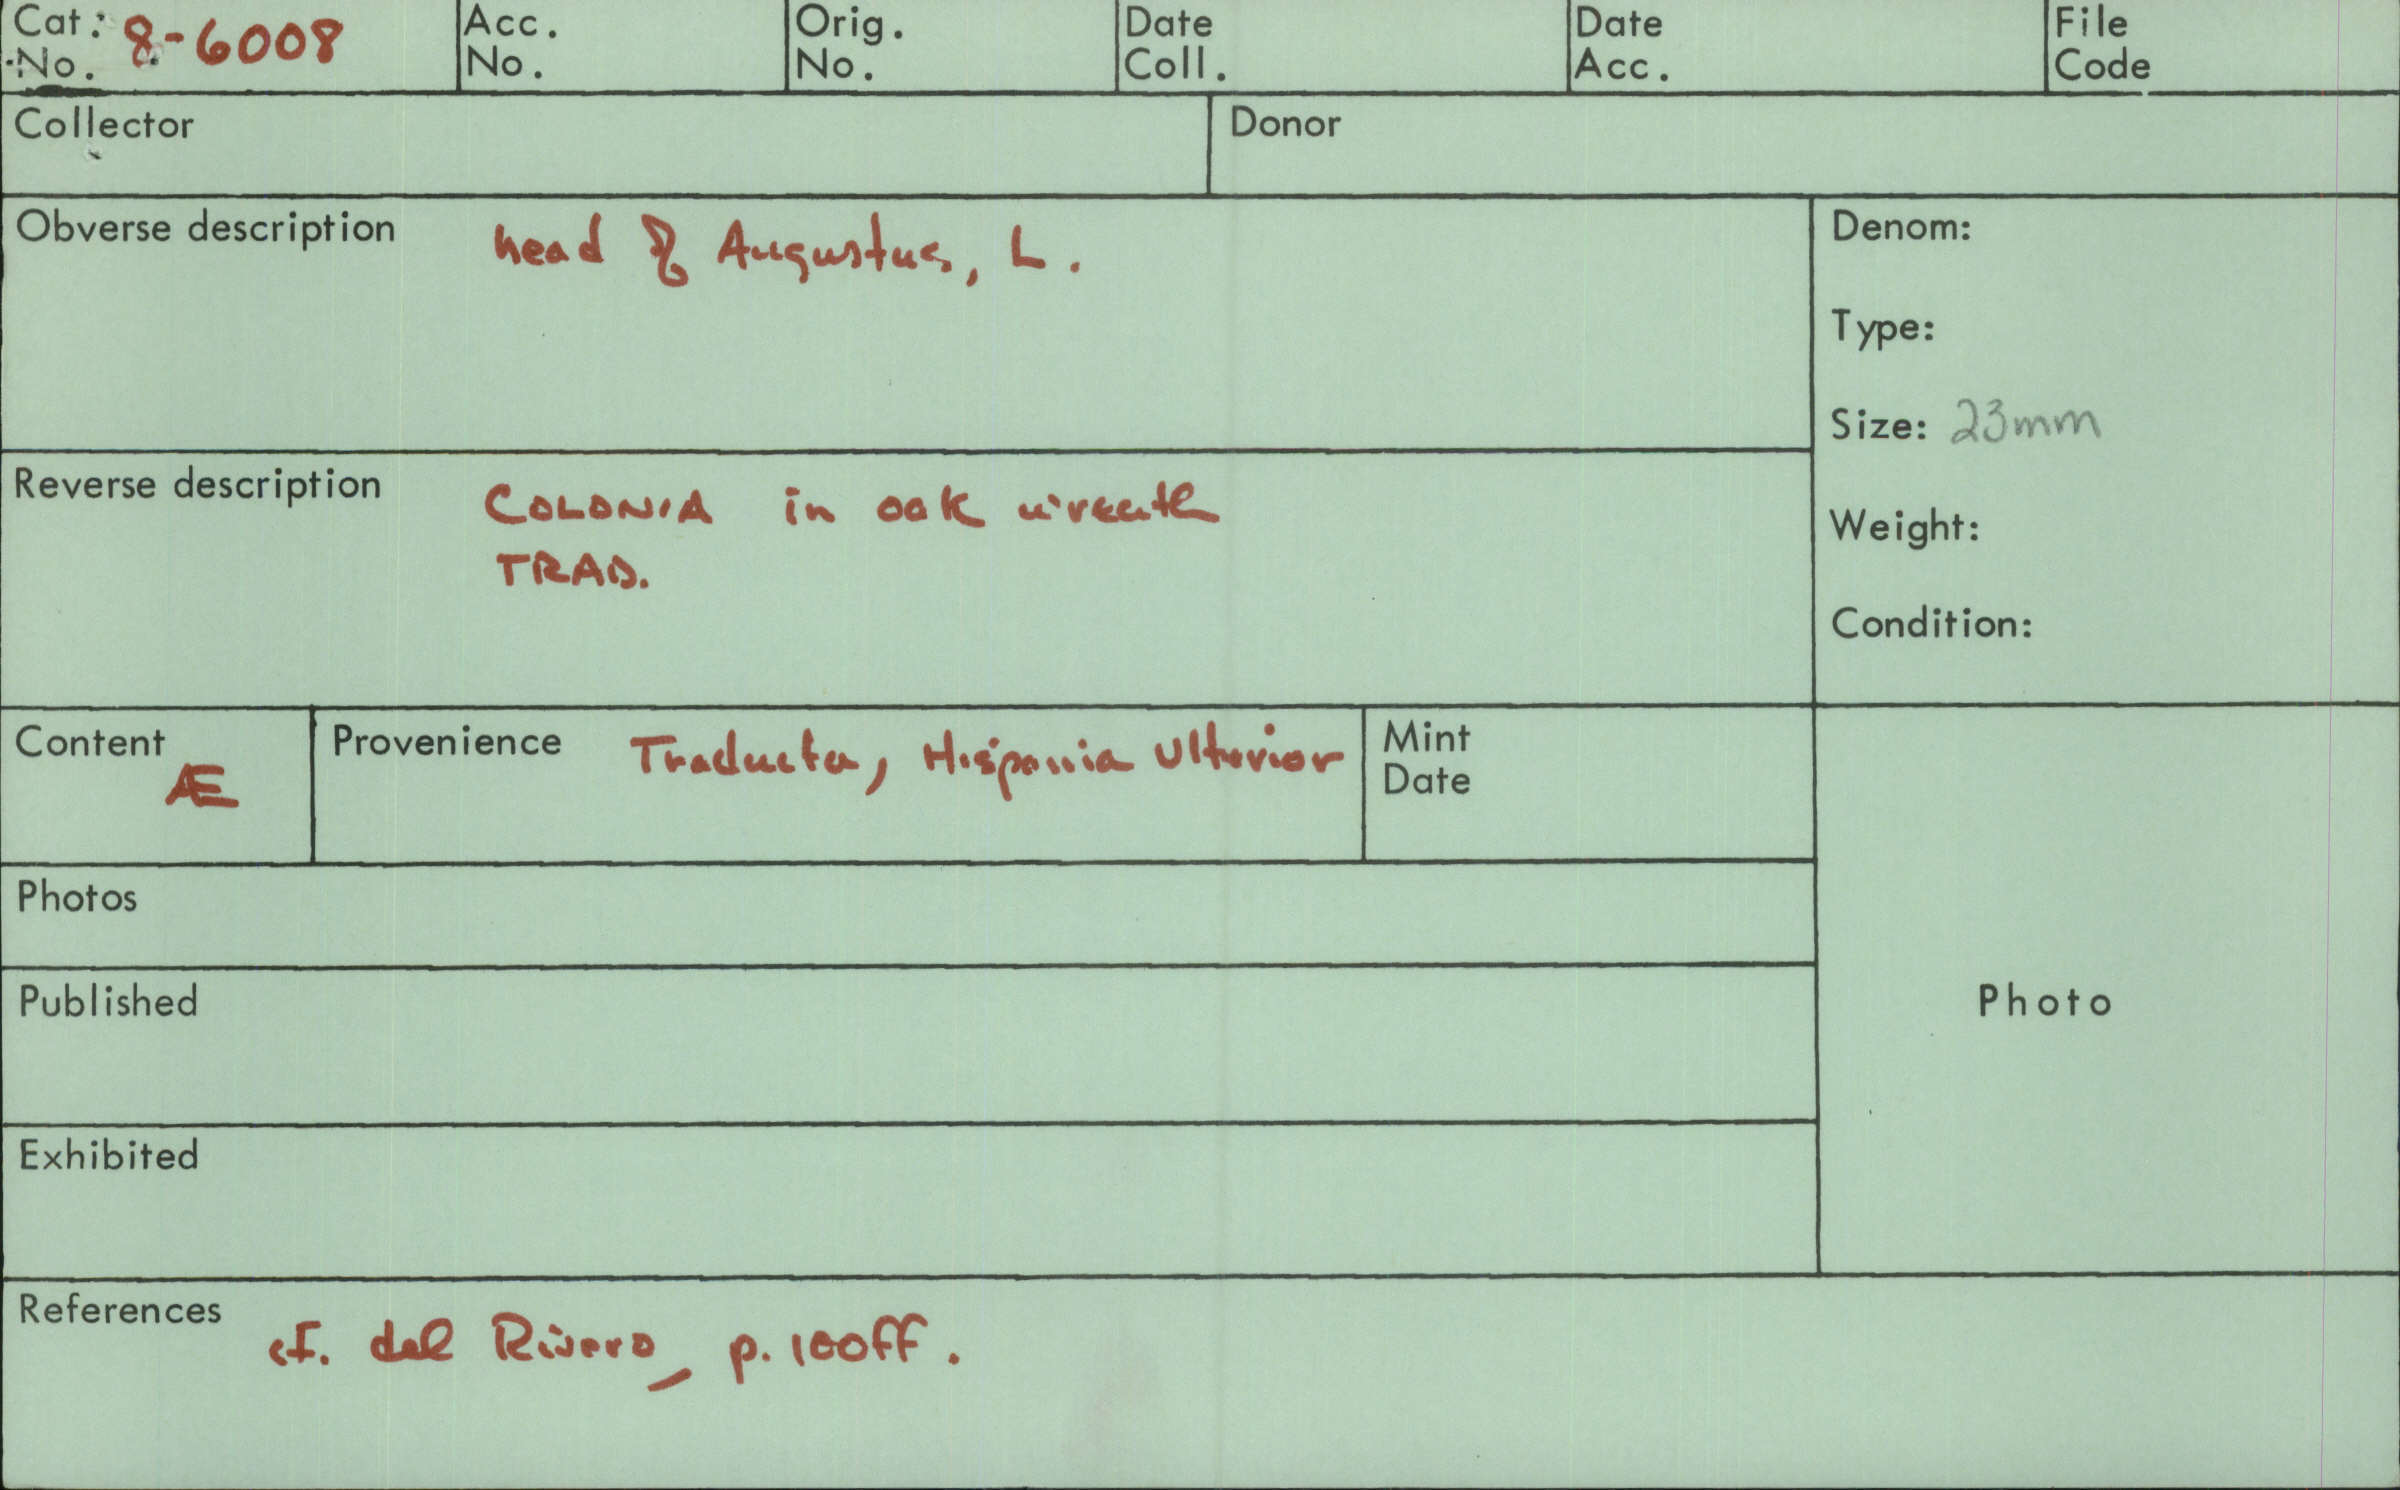 Cat. No. 8-6008
Acc. No.
Orig. No.
Date Coll.
Date Acc.
File Code
Collector
Donor
Obverse description head of Augustus, L.
Denom:
Type:
Size: 23mm
Reverse description COLONIA in oak wreath
TRAD.
Weight:
Condition:
Content Æ
Provenience Traducta, Hispania Ulterior
Mint Date
Photos
Published
Photo
Exhibited
References cf. del Rivero, p. 100ff.